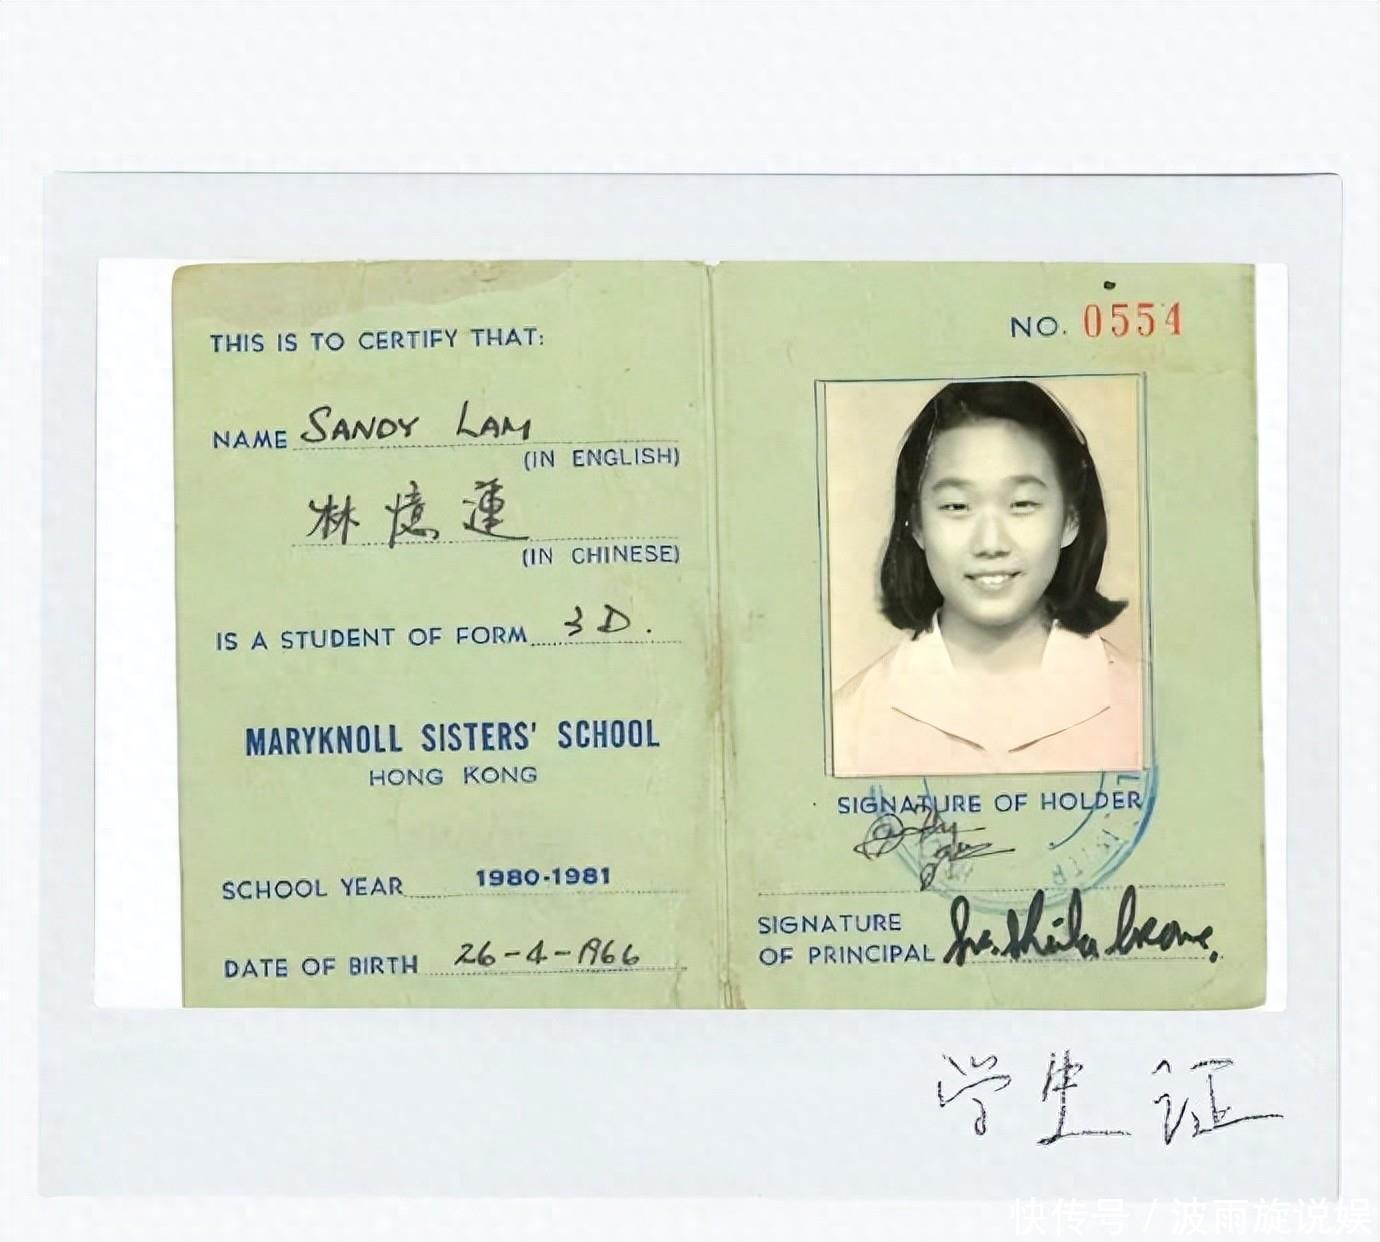 THIS IS TO CERTIFY THAT:
NAME SANDY LAM
(IN ENGLISH)
林憶蓮
(IN CHINESE)
IS A STUDENT OF FORM 3D.
MARYKNOLL SISTERS' SCHOOL
HONG KONG
SCHOOL YEAR 1980-1981
DATE OF BIRTH 26-4-1966
NO. 0554
SIGNATURE OF HOLDER
SIGNATURE
OF PRINCIPAL
学生证
快传号 / 波雨旋说娱